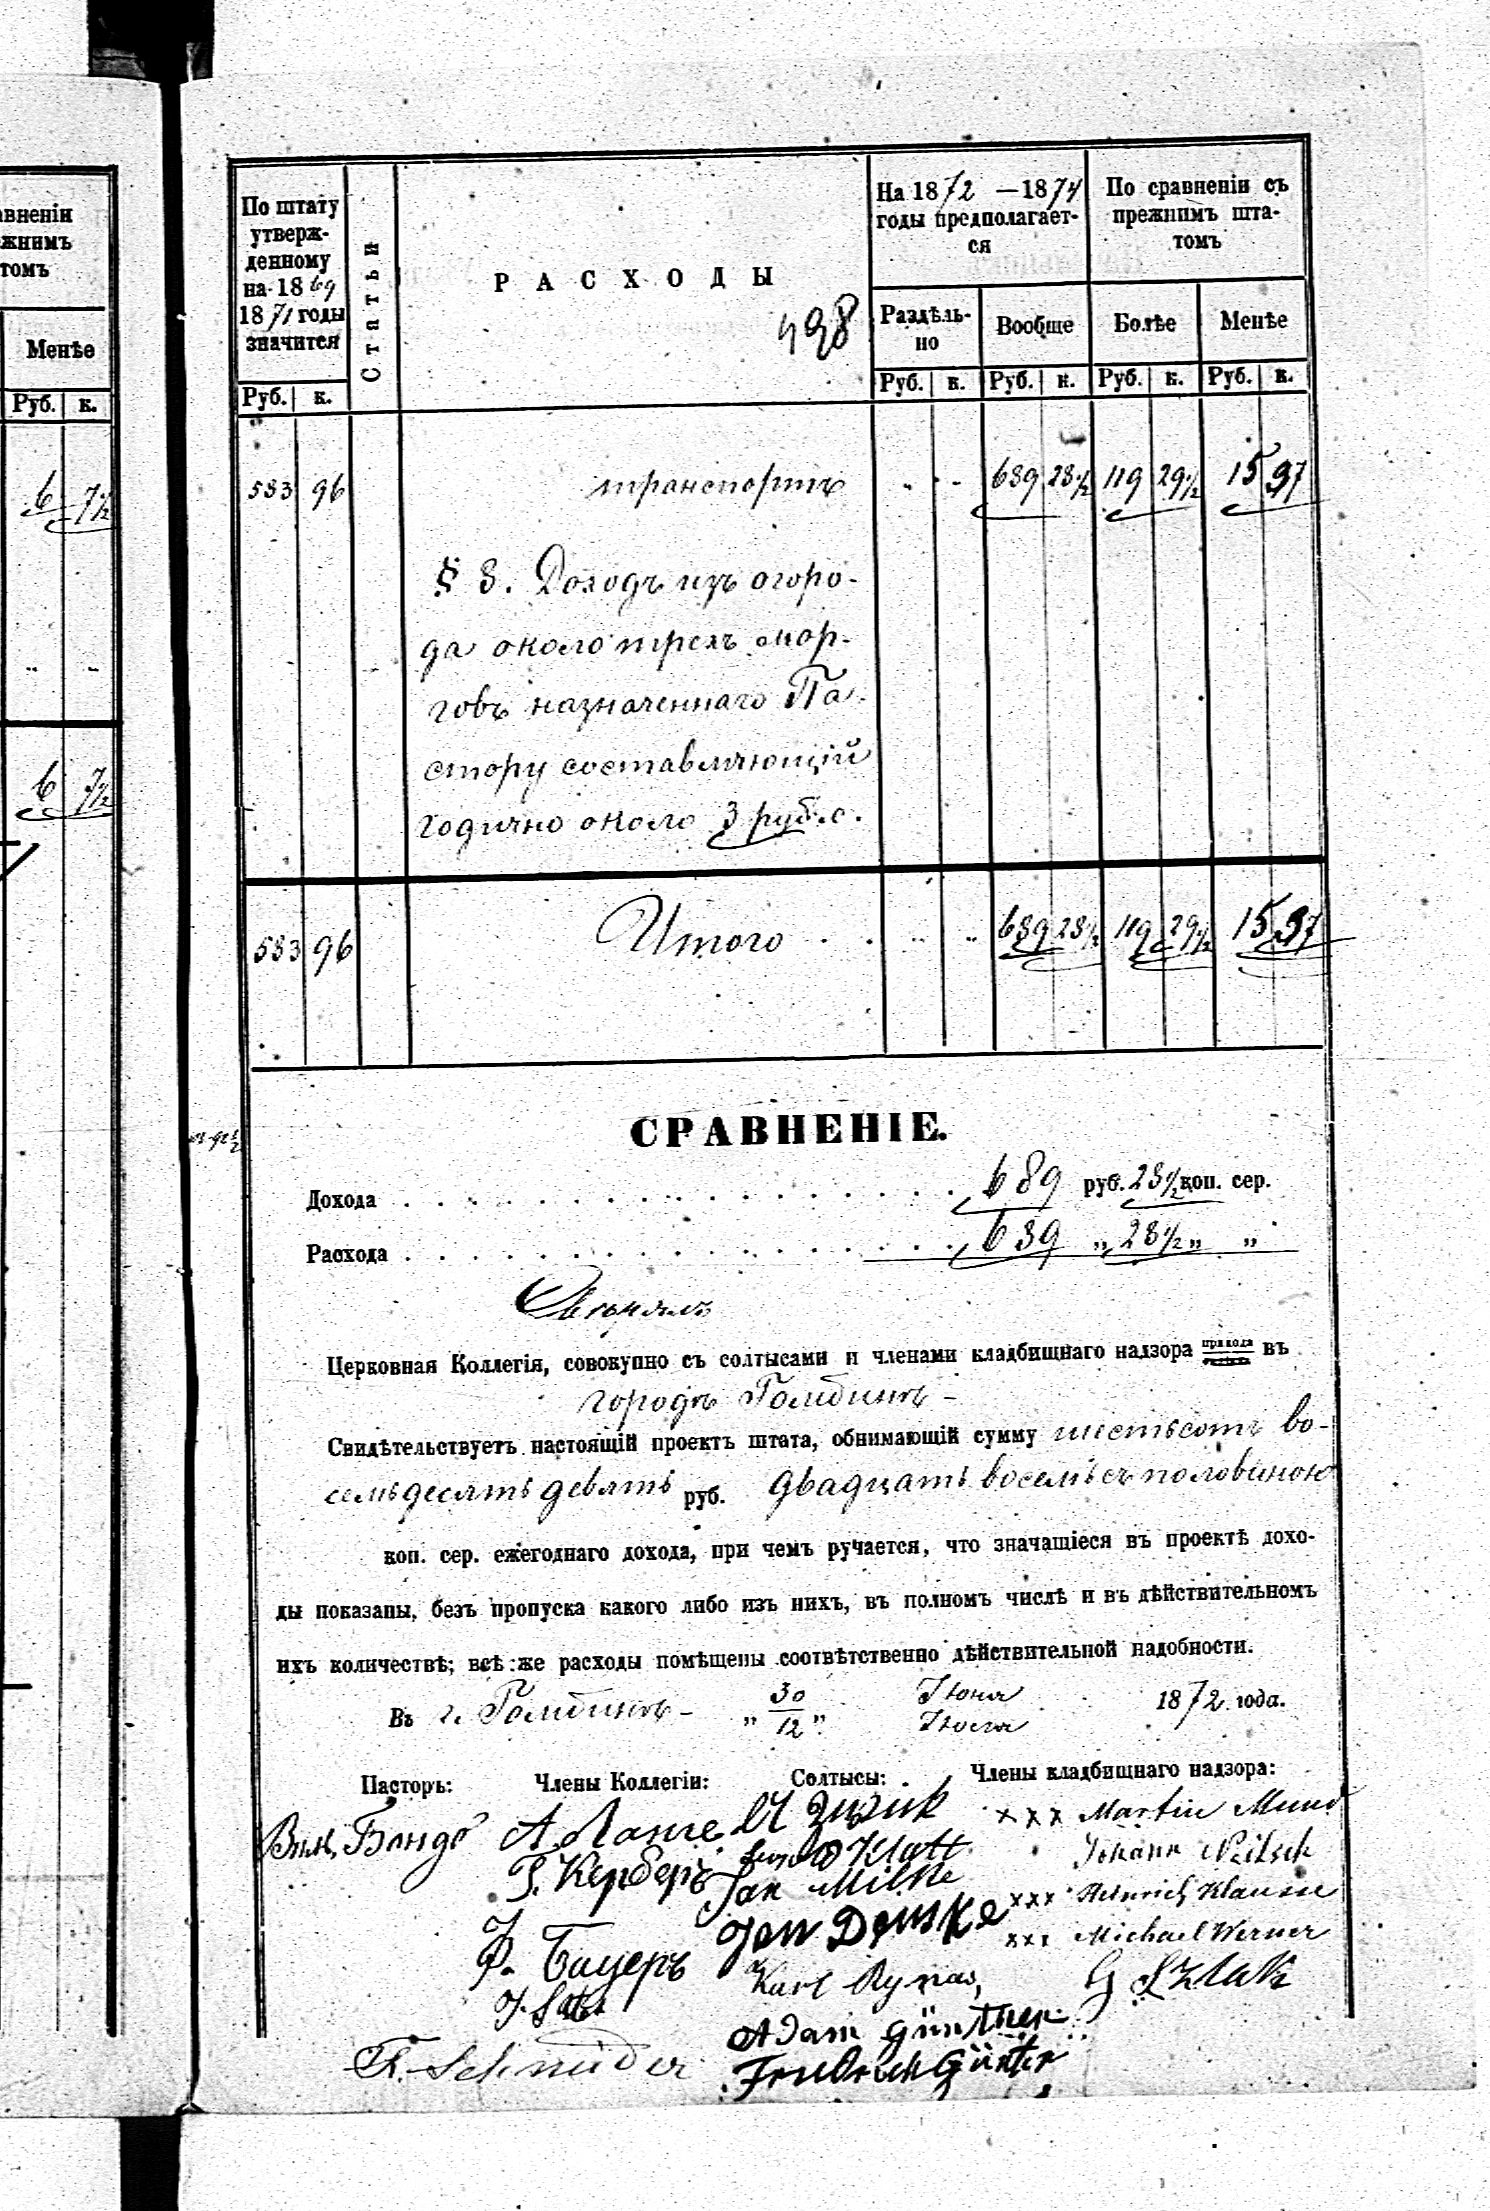 авненіи
жнимъ
томъ
Менѣе
Руб. к.
6 7½
6 7½
По штату
утверж-
денному
на 1869
1871 годы
значится
Руб. к.
Статьи
РАСХОДЫ
498
На 1872 — 1874
годы предполагает-
ся
Раздѣль-
но
Вообще
Руб. к. Руб. к.
По сравненіи съ
прежнимъ шта-
томъ
Болѣе
Менѣе
Руб. к. Руб. к.
583 96 транспортъ 689 28½ 119 29½ 15 97
§ 3. Доходъ изъ огоро-
да около трехъ мор-
говъ назначеннаго Па-
стору составляющій
годично около 3 рубл.
583 96 Итого 689 28½ 119 29½ 15 97
СРАВНЕНІЕ.
Дохода 689 руб. 28½ коп. сер.
Расхода 689 „ 28½ „ „
Церковная Коллегія, совокупно съ солтысами и членами кладбищнаго надзора прихода въ
городѣ Гомбинѣ -
Свидѣтельствуетъ настоящій проектъ штата, обнимающій сумму шестьсотъ во-
семьдесятъ девять руб. двадцать восемь съ половиною
коп. сер. ежегоднаго дохода, при чемъ ручается, что значащіеся въ проектѣ дохо-
ды показаны, безъ пропуска какого либо изъ нихъ, въ полномъ числѣ и въ дѣйствительномъ
ихъ количествѣ; всѣ же расходы помѣщены соотвѣтственно дѣйствительной надобности.
Въ г. Гомбинѣ - „ 30/12 „ Іюня/Іюля 1872 года.
Пасторъ: Члены Коллегіи: Солтысы: Члены кладбищнаго надзора:
Вил. Бандо
А. Ланге
Г. Керберъ
Ф. Бауеръ
F. Schneider
Klatt
Jan Milke
Jan Demske
Karl
Adam Günther
Friedrich Günter
xxx Martin Mund
Johann Nitsch
xxx Heinrich Klause
xxx Michael Werner
G Szlak